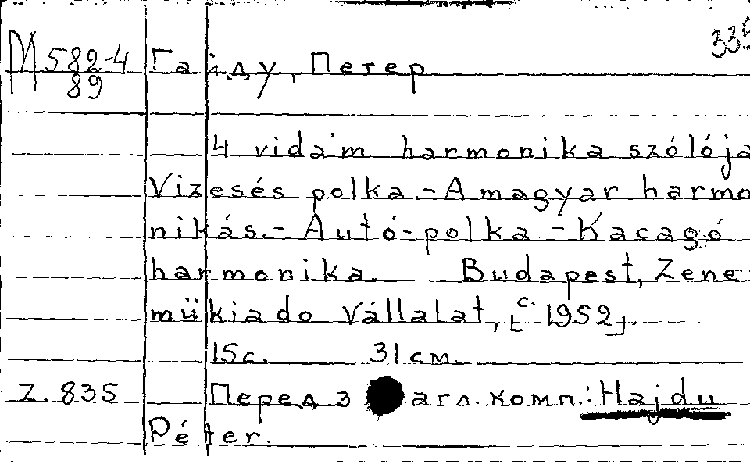 М 582-4 Гайду, Петер
89
4 vidám harmonika szólója
Vizesés polka.-A magyar harmo
nikás.- Autó-polka - Kacagó
harmonika. Budapest, Zene
műkiado Vállalat, [c. 1952].
15с. 31 см.
Z. 835 Перед загл. комп.: Hajdu
Péter.